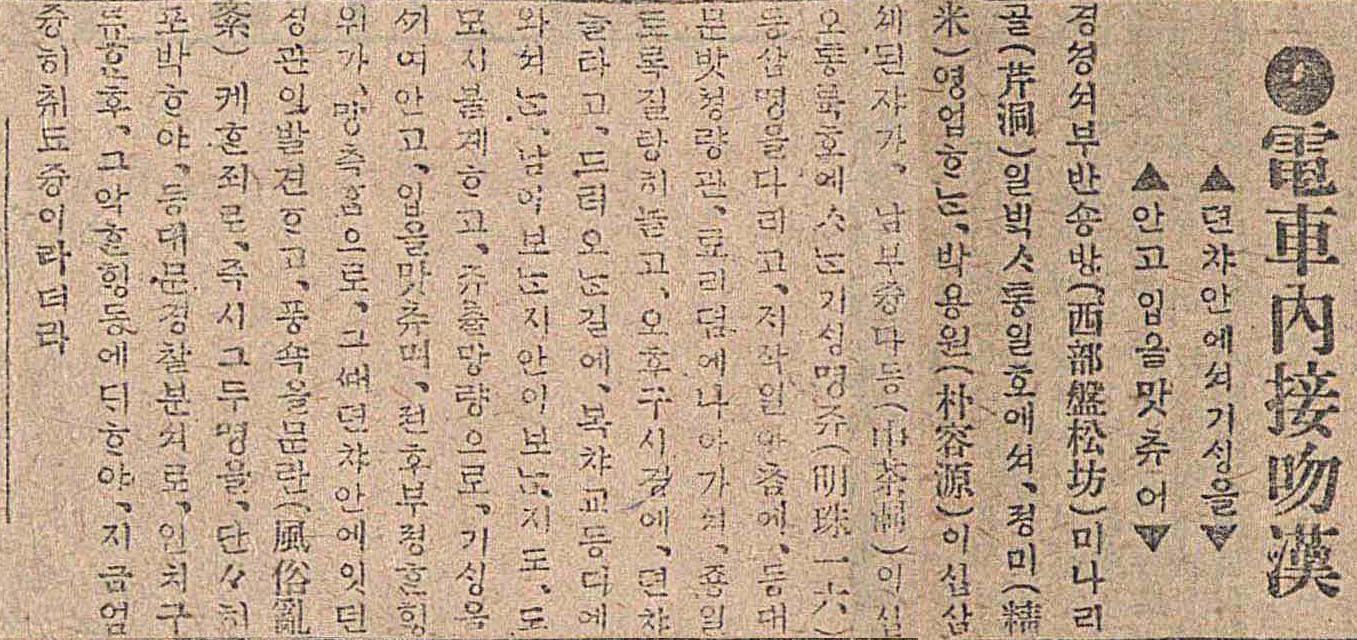 ●電車內接吻漢
▲뎐챠안에셔기싱을▼
▲안고입을맛츄어▼
경셩셔부반숑방(西部盤松坊)미나리
골(芹洞)일빅ᄉ통일호에셔、졍미(精
米)영업ᄒᆞᄂᆞᆫ、박용원(朴容源)이십삼
셰된쟈가、남부즁다동(中茶洞)이십
오통륙호에ᄉᆞᄂᆞᆫ기싱명쥬(明珠一六)
등삼명을다리고、지작일아츰에、동대
문밧쳥량관、료리뎜에나아가셔、죵일
토록질탕히놀고、오후구시경에、뎐챠
를타고、드러오ᄂᆞᆫ길에、복챠교등디에
와셔ᄂᆞᆫ、남이보ᄂᆞᆫ지안이보ᄂᆞᆫ지도、도
모지불계ᄒᆞ고、츄츌망량으로、기싱을
ᄭᅵ여안고、입을맛츄며、젼후부졍ᄒᆞᆫ힝
위가、망측ᄒᆞᆷ으로、그ᄯᅢ뎐챠안에잇던
슌관이발견ᄒᆞ고、풍쇽을문란(風俗亂
紊)케ᄒᆞᆫ죄로、즉시그두명을、단々히
포박ᄒᆞ야、동대문경찰분셔로、인치구
류ᄒᆞᆫ후、그악ᄒᆞᆫ힝동에디ᄒᆞ야、지금엄
즁히취됴즁이라더라